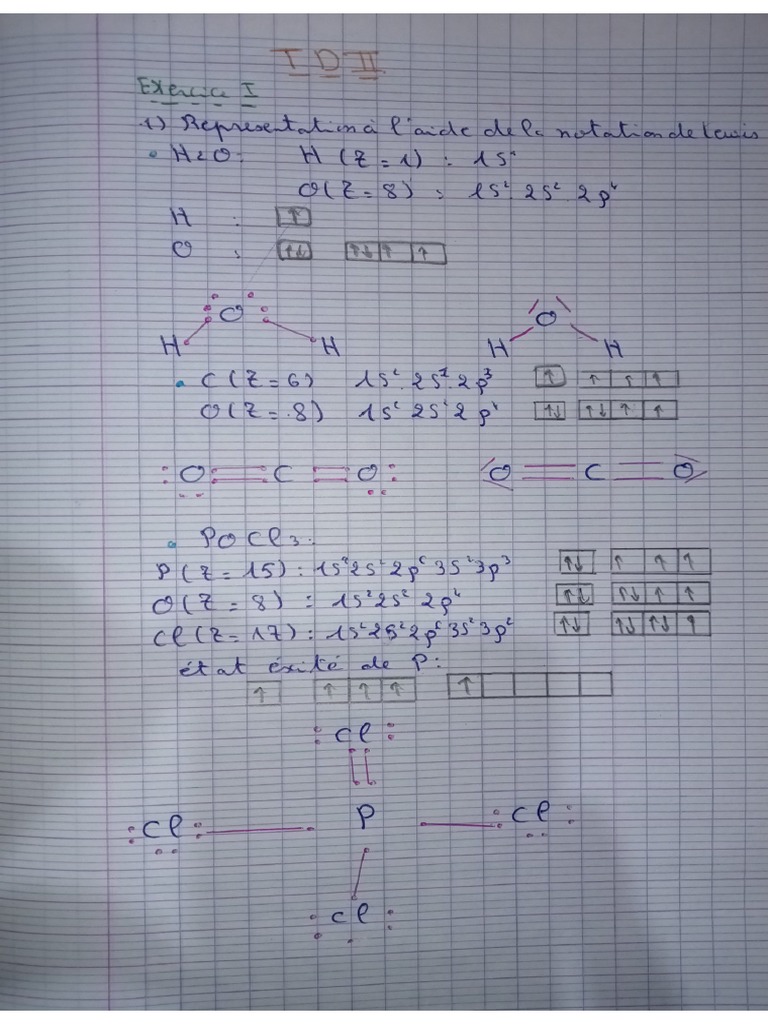 TD II
Exercice I
1) Representation à l'aide de la notation de Lewis
• H2O: H (Z = 1) : 1s¹
O(Z = 8) : 1s² 2s² 2p⁴
H : ↑
O : ↑↓ ↑↓ ↑ ↑
O O
H H H H
• C (Z = 6) 1s² 2s¹ 2p³ ↑ ↑ ↑ ↑
O (Z = 8) 1s² 2s² 2p⁴ ↑↓ ↑↓ ↑ ↑
O = C = O O = C = O
• POCl3:
P (Z = 15) : 1s² 2s² 2p⁶ 3s² 3p³ ↑↓ ↑ ↑ ↑
O (Z = 8) : 1s² 2s² 2p⁴ ↑↓ ↑↓ ↑ ↑
Cl (Z = 17) : 1s² 2s² 2p⁶ 3s² 3p⁵ ↑↓ ↑↓ ↑↓ ↑
état éxité de P:
↑ ↑ ↑ ↑ ↑
Cl
Cl P Cl
Cl